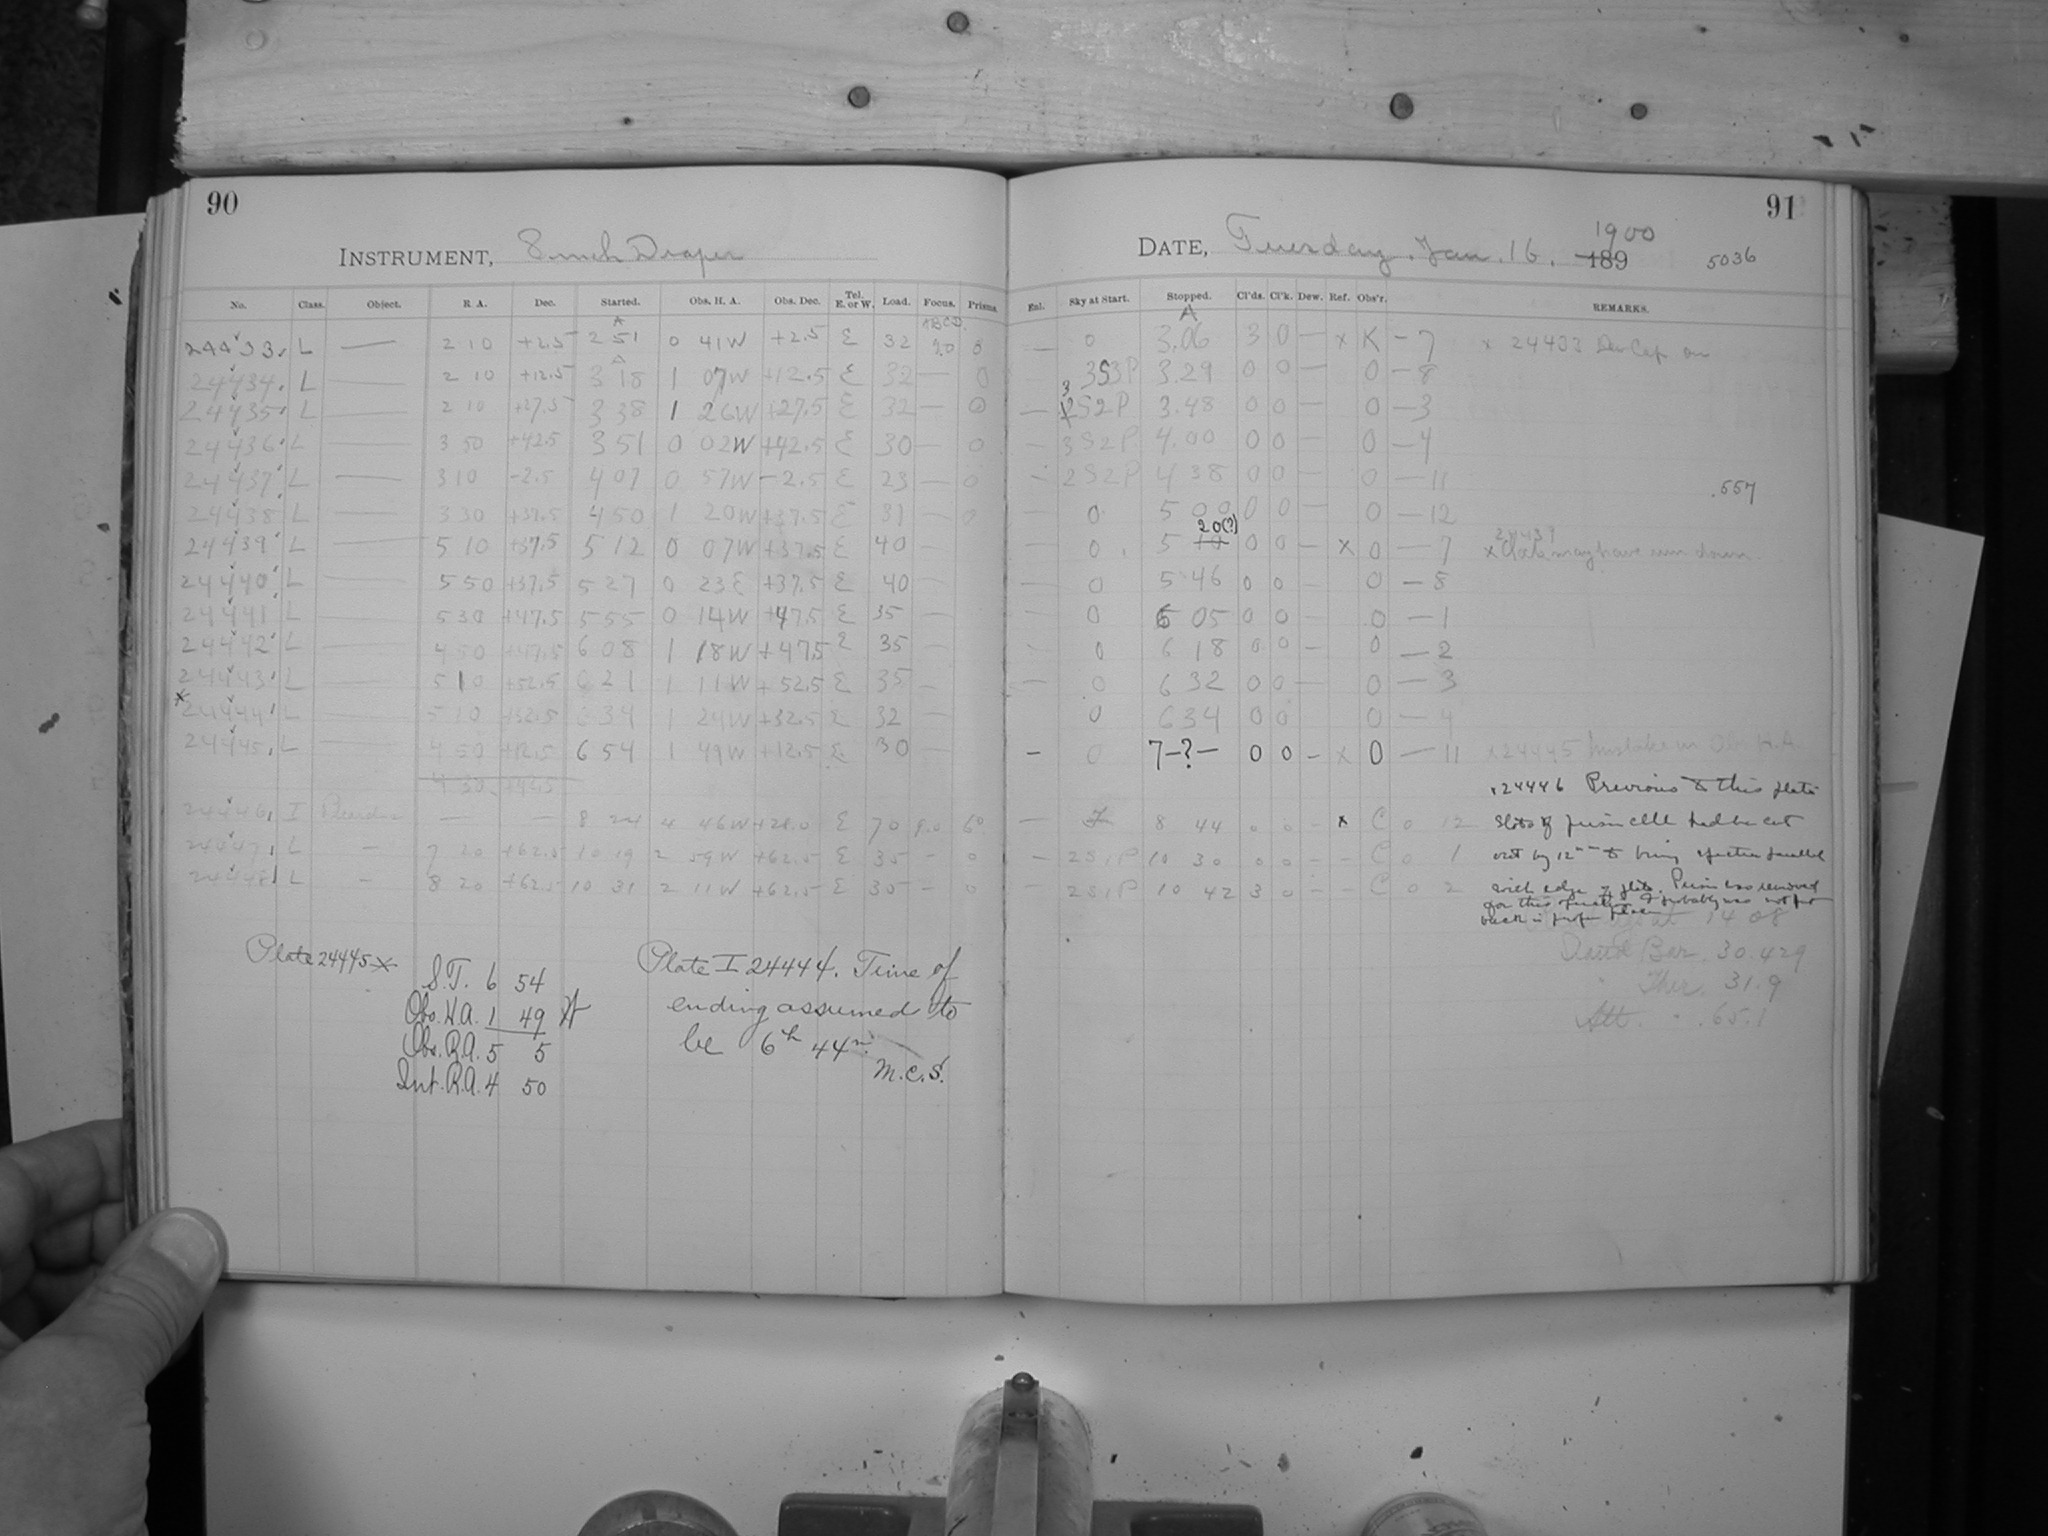 90
INSTRUMENT, 8 inch Draper
No. Class. Object. R. A. Dec. Started. Obs. H. A. Obs. Dec. Tel. E. or W. Load. Focus. Prisms
24433. L — 2 10 +2.5 2 51 0 41W +2.5 E 32 20 0
24434. L — 2 10 +12.5 3 18 1 07W +12.5 E 32 — 0
24435. L — 2 10 +27.5 3 38 1 26W +27.5 E 32 — 0
24436. L — 3 50 +42.5 3 51 0 02W +42.5 E 30 — 0
24437. L — 3 10 -2.5 4 07 0 57W -2.5 E 23 — 0
24438. L — 3 30 +37.5 4 50 1 20W +37.5 E 31 — 0
24439. L — 5 10 +37.5 5 12 0 07W +37.5 E 40 —
24440. L — 5 50 +37.5 5 27 0 23E +37.5 E 40 —
24441 L — 5 30 +47.5 5 55 0 14W +47.5 E 35 —
24442. L — 4 50 +47.5 6 08 1 18W +47.5 E 35 —
24443. L — 5 10 +52.5 6 21 1 11W +52.5 E 35 —
x 24444. L — 5 10 +32.5 6 34 1 24W +32.5 E 32 —
24445. L — 4 50 +12.5 6 54 1 49W +12.5 E 30 —
4 30 +42.5
24446. I — — 8 24 4 46W +24.0 E 70 9.0 60
24447. L — 7 20 +62.5 10 19 2 59W +62.5 E 35 — 0
24448. L — 8 20 +62.5 10 31 2 11W +62.5 E 35 — 0
Plate 24445 x
S.T. 6 54
Obs. H.A. 1 49 W
Obs. R.A. 5 5
Int. R.A. 4 50
Plate I 24444. Time of
ending assumed to
be 6h 44m.
M.C.S.
91
DATE, Tuesday, Jan. 16. 189 1900
5036
Enl. Sky at Start. Stopped. Cl'ds. Cl'k. Dew. Ref. Obs'r. REMARKS.
A
— 0 3.06 3 0 — x K — 7 x 24433 Dew Cap on
3S3P 3.29 0 0 — 0 — 8
— 3 2S2P 3.48 0 0 — 0 — 3
— 3S2P 4.00 0 0 — 0 — 4
— 2S2P 4 38 0 0 — 0 — 11
.557
— 0 5 00 0 0 — 0 — 12
20(?)
— 0 5 19 0 0 — x 0 — 7 x 24439 Clock may have run down
— 0 5 46 0 0 — 0 — 8
— 0 6 05 0 0 — 0 — 1
— 0 6 18 0 0 — 0 — 2
— 0 6 32 0 0 — 0 — 3
— 0 6 34 0 0 0 — 4
— 0 7-?- 0 0 — x 0 — 11 x 24445 Mistake in Obs. H.A.
x 24446 Previous to this plate
— 8 44 0 0 - x C 0 12 slots of prism cell had be cut
— 2S1P 10 30 0 0 - - C 0 1 out by 12 to bring spectra parallel
— 2S1P 10 42 3 0 - - C 0 2 with edge of plate. Prism was removed
for this & probably was not put
back in proper place
14 08
Bar. 30.429
Ther. 31.9
Att. " .65.1